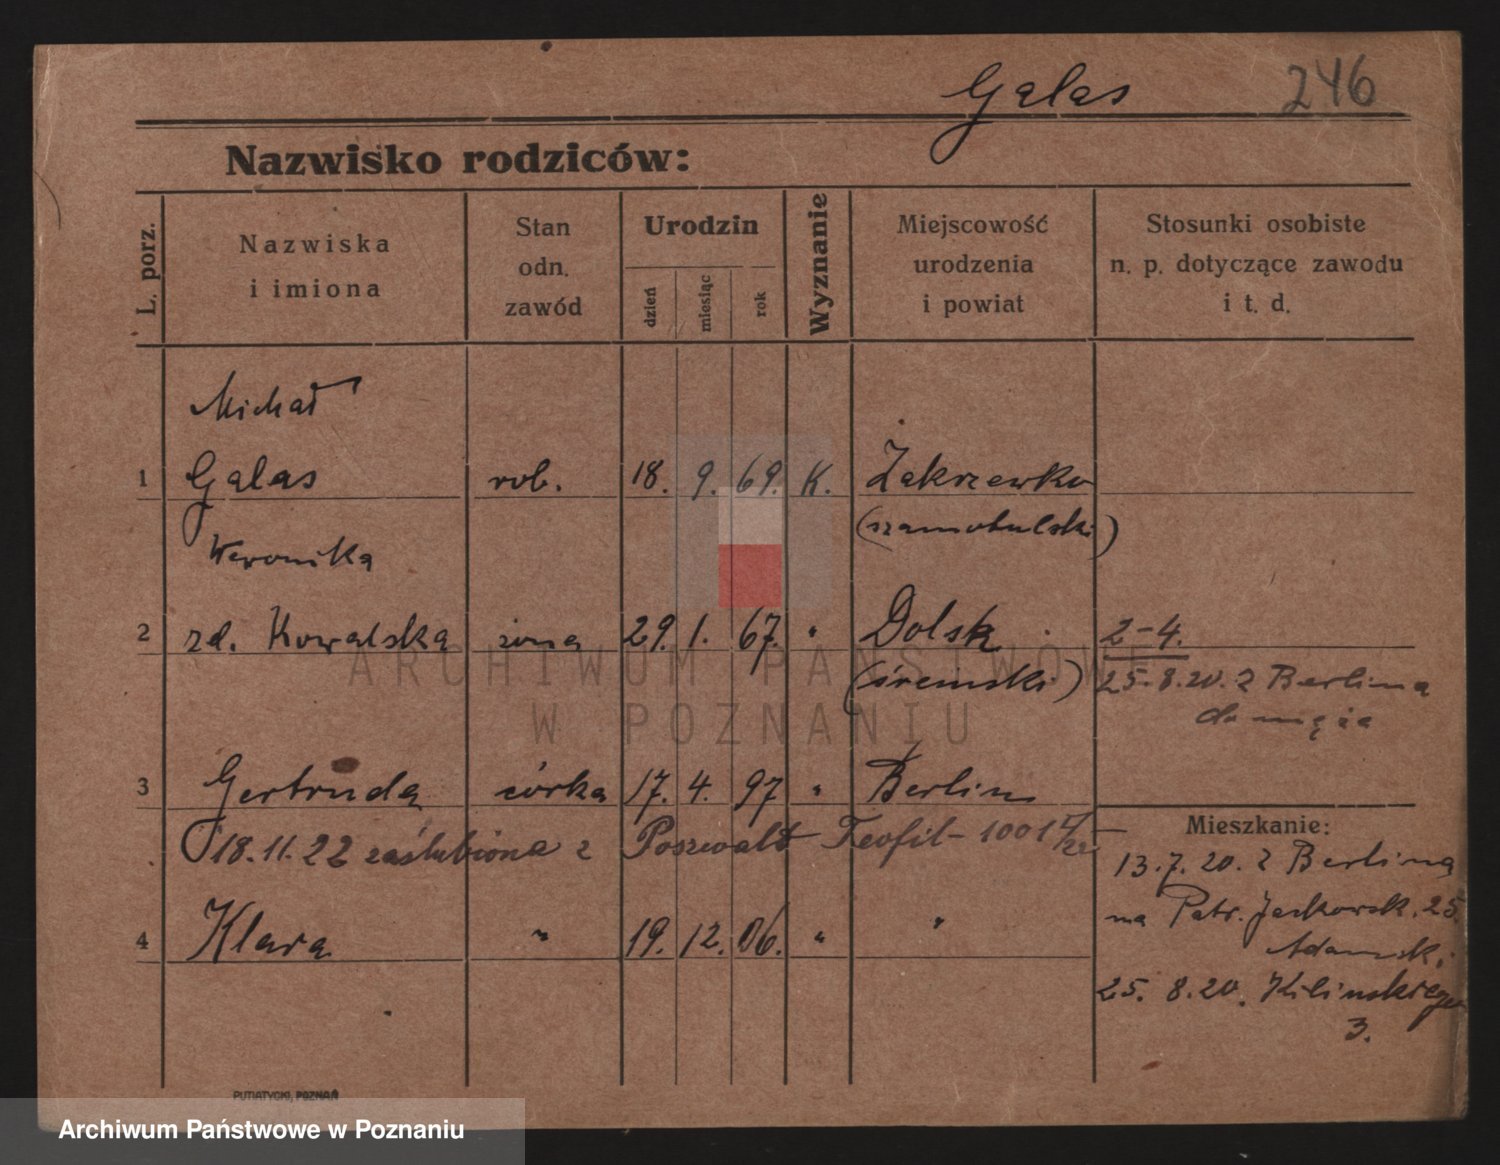 Galas 246
Nazwisko rodziców:
L. porz.
Nazwiska
i imiona
Stan
odn.
zawód
Urodzin
dzień
miesiąc
rok
Wyznanie
Miejscowość
urodzenia
i powiat
Stosunki osobiste
n. p. dotyczące zawodu
i t. d.
Michał
1 Galas rob. 18. 9. 69. K. Zakrzewko
(szamotulski)
Weronika
2 zd. Kowalska żona 29. 1. 67. " Dolsk 2-4.
(śremski) 25.8.20. z Berlina
do męża
3 Gertruda córka 17. 4. 97 " Berlin
Mieszkanie:
18.11.22 zaślubiona z Poszwald Teofil - 1001
13.7.20. z Berlina
na Patr. Jackowsk. 25.
4 Klara " 19. 12. 06. " "
Adamsk.
25. 8. 20. Kilinskiego
3.
PUTIATYCKI, POZNAŃ
ARCHIWUM PAŃSTWOWE
W POZNANIU
Archiwum Państwowe w Poznaniu